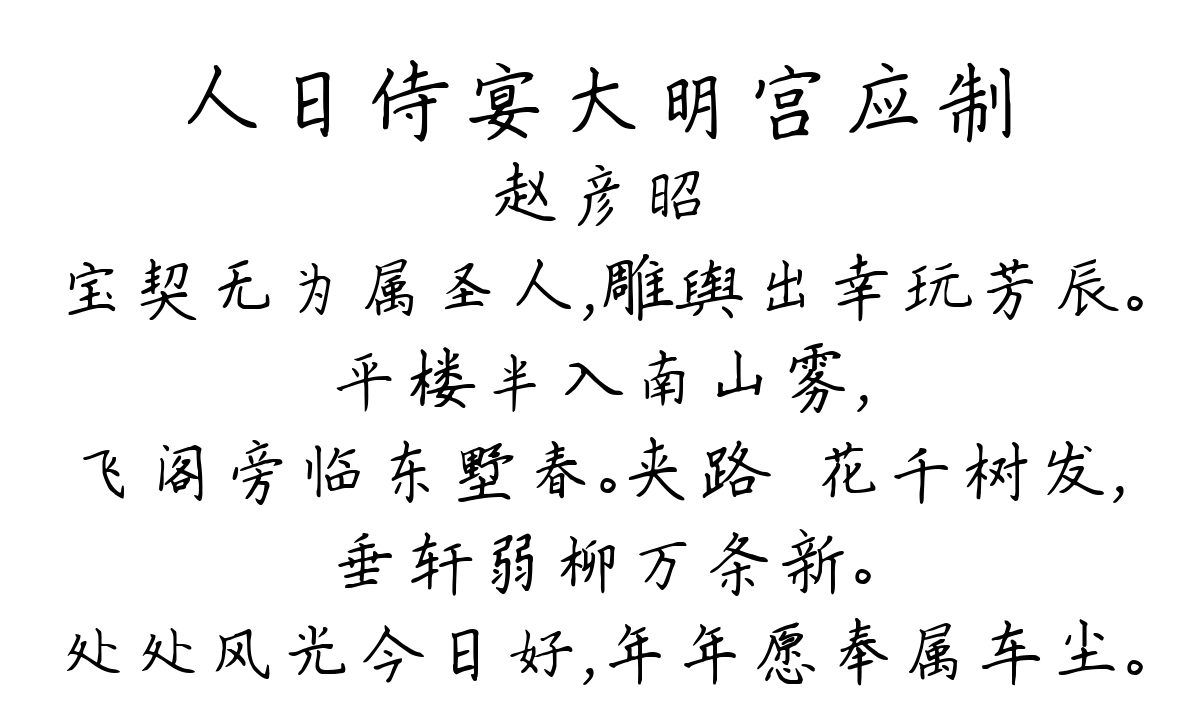 人日侍宴大明宫应制
赵彦昭
宝契无为属圣人,雕舆出幸玩芳辰。
平楼半入南山雾,
飞阁旁临东墅春。夹路 花千树发,
垂轩弱柳万条新。
处处风光今日好,年年愿奉属车尘。